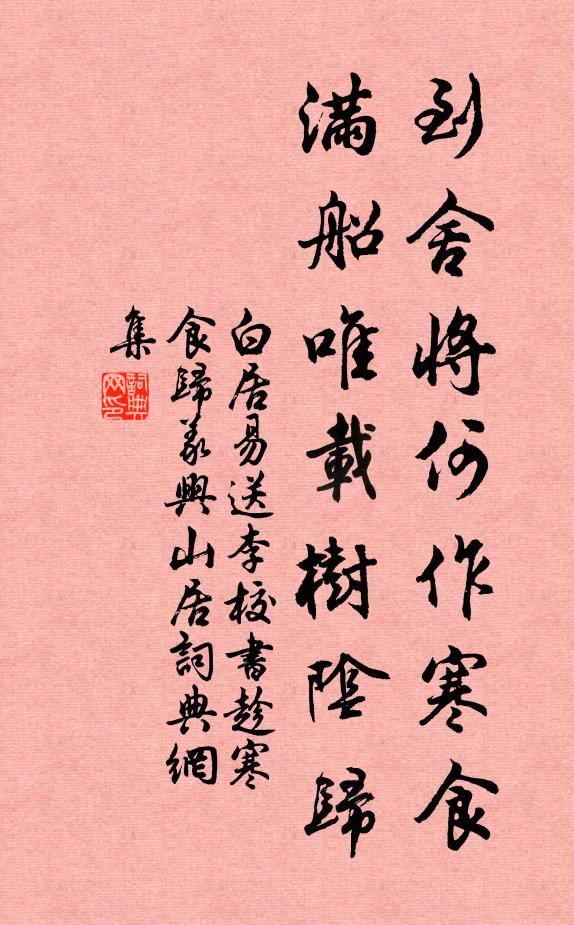 到舍將何作寒食
滿船唯載樹陰歸
白居易送李校書趁寒
食歸義興山居詞典網
集
詞典
网印